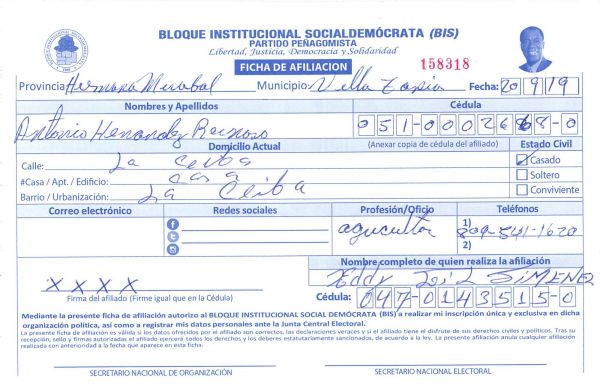 BLOQUE INSTITUCIONAL SOCIALDEMÓCRATA (BIS)
PARTIDO PEÑAGOMISTA
Libertad, Justicia, Democracia y Solidaridad
FICHA DE AFILIACION
158318
Provincia Hermana Mirabal Municipio: Villa Tapia Fecha: 20 9 19
Nombres y Apellidos Cédula
Antonio Henandez Reinoso 051-00026 8-0
Domicilio Actual (Anexar copia de cédula del afiliado) Estado Civil
Calle: La Ceiba Casado
#Casa / Apt. / Edificio: casa Soltero
Barrio / Urbanización: La Ceiba Conviviente
Correo electrónico Redes sociales Profesión/Oficio Teléfonos
agricultor 1) 809-541-1620
2)
Nombre completo de quien realiza la afiliación
X X X X Eddy JIMENEZ
Firma del afiliado (Firme igual que en la Cédula) Cédula: 047-0143515-0
Mediante la presente ficha de afiliación autorizo al BLOQUE INSTITUCIONAL SOCIAL DEMÓCRATA (BIS) a realizar mi inscripción única y exclusiva en dicha
organización política, así como a registrar mis datos personales ante la Junta Central Electoral.
La presente ficha de afiliación es válida si los datos ofrecidos por el afiliado son correctos, las declaraciones veraces y si el afiliado tiene el disfrute de sus derechos civiles y políticos. Tras su
recepción, sello y firmas autorizadas el afiliado ejercerá todos los derechos y los deberes estatutariamente sancionados, de acuerdo a la ley. La presente afiliación anula cualquier afiliación
realizada con anterioridad a la fecha que aparece en esta ficha.
SECRETARIO NACIONAL DE ORGANIZACIÓN SECRETARIO NACIONAL ELECTORAL